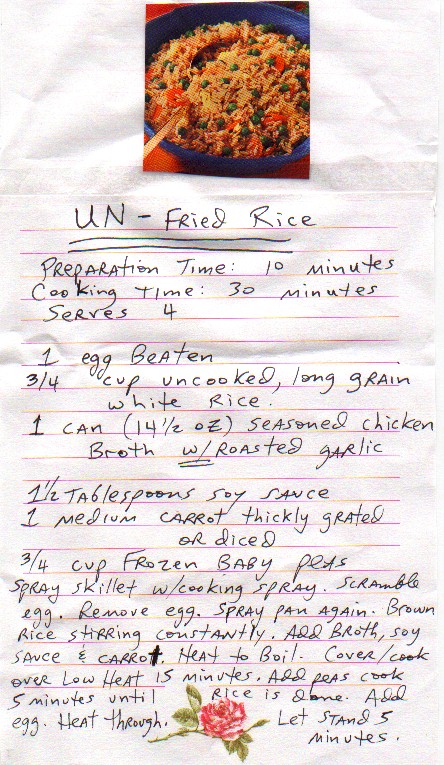 UN - Fried Rice
Preparation Time: 10 minutes
Cooking Time: 30 minutes
Serves 4
1 egg Beaten
3/4 cup uncooked, long grain
white Rice.
1 can (14 1/2 oz) seasoned chicken
Broth w/ Roasted garlic
1 1/2 Tablespoons soy sauce
1 medium carrot thickly grated
or diced
3/4 cup Frozen Baby peas
Spray skillet w/cooking spray. Scramble
egg. Remove egg. Spray pan again. Brown
Rice stirring constantly. Add Broth, soy
sauce & carrot. Heat to Boil. Cover/cook
over Low Heat 15 minutes. Add peas cook
5 minutes until Rice is done. Add
egg. Heat through. Let stand 5
minutes.